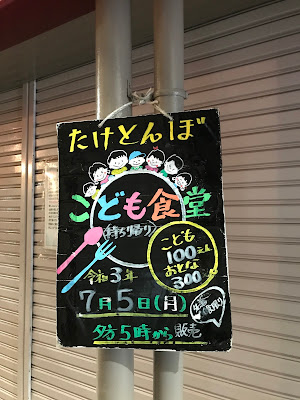 たけとんぼ
こども食堂
(持ち帰り)
こども
100えん
おとな
300〃
令和3年
7月5日(月)
夕方5時から販売